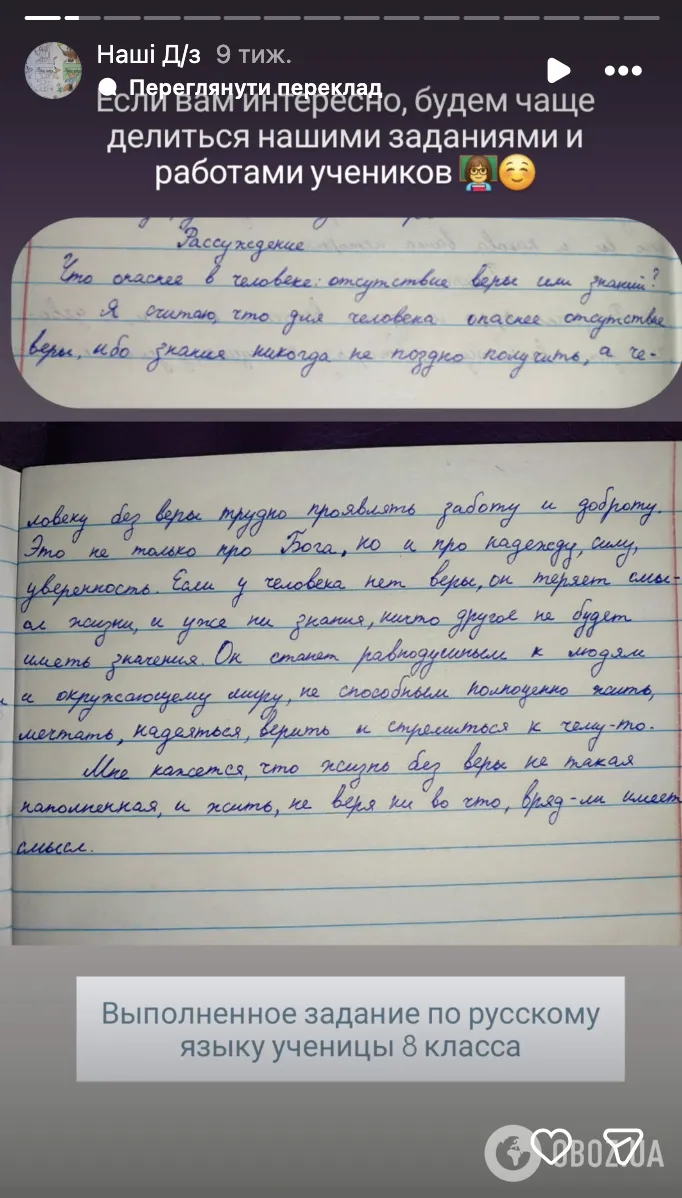 Наші Д/з 9 тиж.
Переглянути переклад
Если вам интересно, будем чаще
делиться нашими заданиями и
работами учеников 👩‍🏫☺️
Рассуждение
Что опаснее в человеке: отсутствие веры или знаний?
Я считаю, что для человека опаснее отсутствие
веры, ибо знания никогда не поздно получить, а че-
ловеку без веры трудно проявлять заботу и доброту.
Это не только про Бога, но и про надежду, силу,
уверенность. Если у человека нет веры, он теряет смы-
сл жизни, и уже ни знания, ничто другое не будет
иметь значения. Он станет равнодушным к людям
и окружающему миру, не способным полноценно жить,
мечтать, надеяться, верить и стремиться к чему-то.
Мне кажется, что жизнь без веры не такая
наполненная, и жить, не веря ни во что, вряд-ли имеет
смысл.
Выполненное задание по русскому
языку ученицы 8 класса
OBOZ.UA